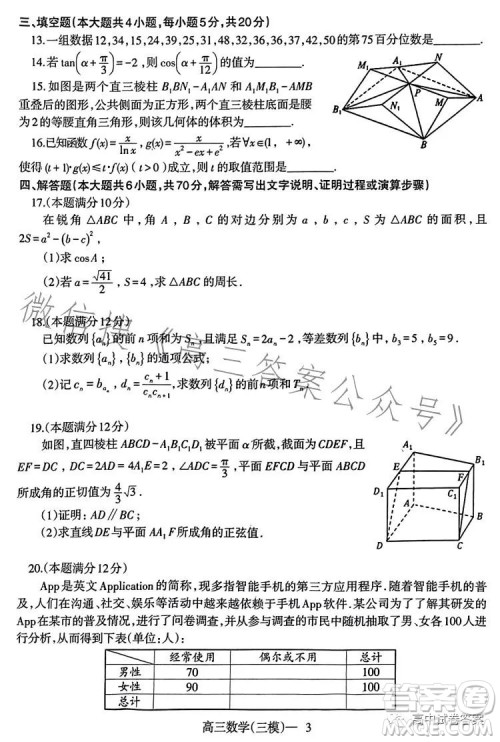 三、填空题(本大题共4小题,每小题5分,共20分)
13.一组数据12,34,15,24,39,25,31,48,32,36,36,37,42,50的第75百分位数是
14.若tan(α+π/3)=-2,则cos(α+π/12)的值为
15.如图是两个直三棱柱B₁BN₁-A₁AN和A₁M₁B₁-AMB
重叠后的图形,公共侧面为正方形,两个直三棱柱底面是腰
为2的等腰直角三角形,则该几何体的体积为
M₁
N
A₁
B₁
P
N₁
M
A
B
16.已知函数f(x)=x/lnx,g(x)=x/(x²-ex+e²),若∀x∈(1,+∞),
使得(t+1)·g(x)≤t·f(x)(t>0)成立,则t的取值范围是
四、解答题(本大题共6小题,共70分,解答需写出文字说明、证明过程或演算步骤)
17.(本题满分10分)
在锐角△ABC中,角A,B,C的对边分别为a,b,c,S为△ABC的面积,且
2S=a²-(b-c)²,
(1)求cosA;
(2)若a=√41/2,S=4,求△ABC的周长.
18.(本题满分12分)
已知数列{aₙ}的前n项和为Sₙ且满足Sₙ=2aₙ-2,等差数列{bₙ}中,b₃=5,b₅=9.
(1)求数列{aₙ},{bₙ}的通项公式;
(2)记cₙ=b_{aₙ},dₙ=(cₙ+1)/(cₙcₙ₊₁),求数列{dₙ}的前n项和Tₙ.
19.(本题满分12分)
如图,直四棱柱ABCD-A₁B₁C₁D₁被平面α所截,截面为CDEF,且
EF=DC,DC=2AD=4A₁E=4,∠ADC=π/3,平面EFCD与平面ABCD
所成角的正切值为4/3√3.
(1)证明:AD//BC;
(2)求直线DE与平面AA₁F所成角的正弦值.
A₁
B₁
E
F
D₁
C₁
A
B
D
C
20.(本题满分12分)
App是英文Application的简称,现多指智能手机的第三方应用程序.随着智能手机的普
及,人们在沟通、社交、娱乐等活动中越来越依赖于手机App软件.某公司为了了解其研发的
App在某市的普及情况,进行了问卷调查,并从参与调查的市民中随机抽取了男、女各100人进
行分析,从而得到下表(单位:人):
经常使用 偶尔或不用 总计
男性 70 100
女性 90 100
总计
高三数学(三模)— 3
微信搜《高三答案公众号》
高中试卷答案